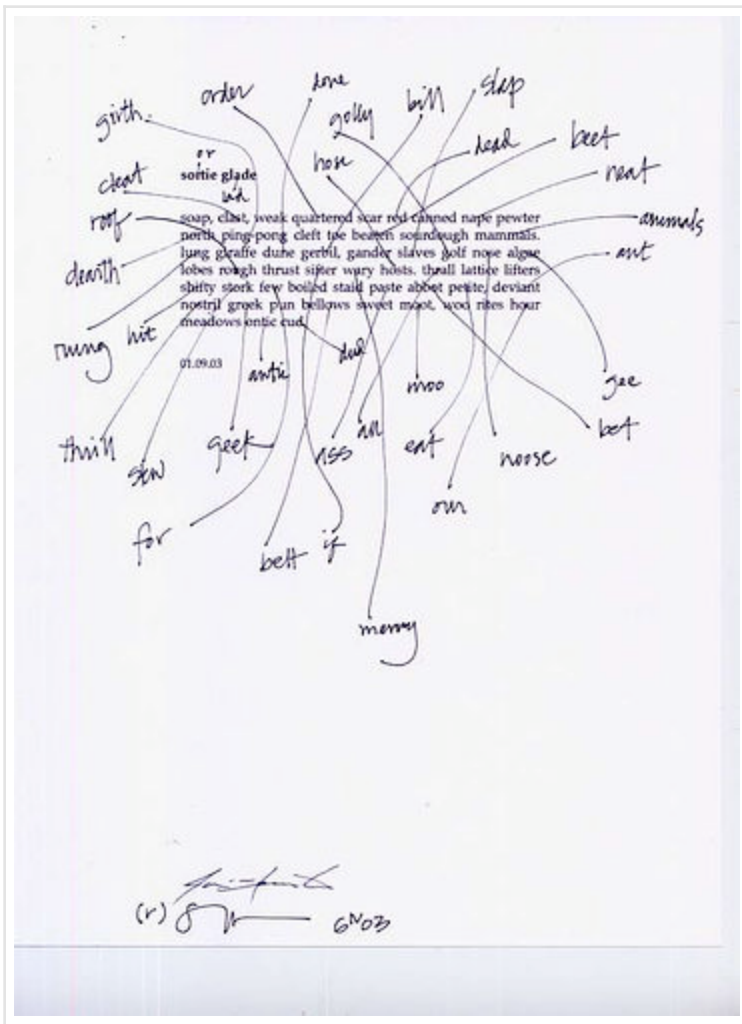 order
done
bill
slap
girth.
golly
dead
beet
or
hose
neat
cleat
sortie glade
lad
roof
soap, clast, weak quartered scar red canned nape pewter
animals
north ping-pong cleft toe beaten sourdough mammals.
ant
lung giraffe dune gerbil, gander slaves golf nose algae
dearth
lobes rough thrust sifter wary hosts. thrall lattice lifters
shifty stork few boiled staid paste abbot petite, deviant
nostril greek pun bellows sweet moot, woo rites hour
rung
hit
meadows ontic cud.
01.09.03
antic
dud
moo
gee
thrill
stew
geek
ass
all
eat
noose
bet
our
for
belt
if
merry
(r)
6N03